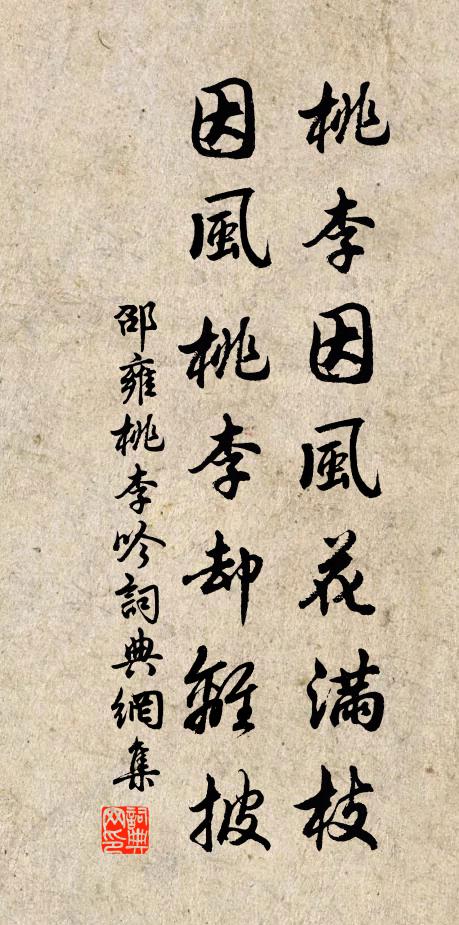 桃李因風花滿枝
因風桃李却離披
邵雍桃李吟詞典網集
詞典網印